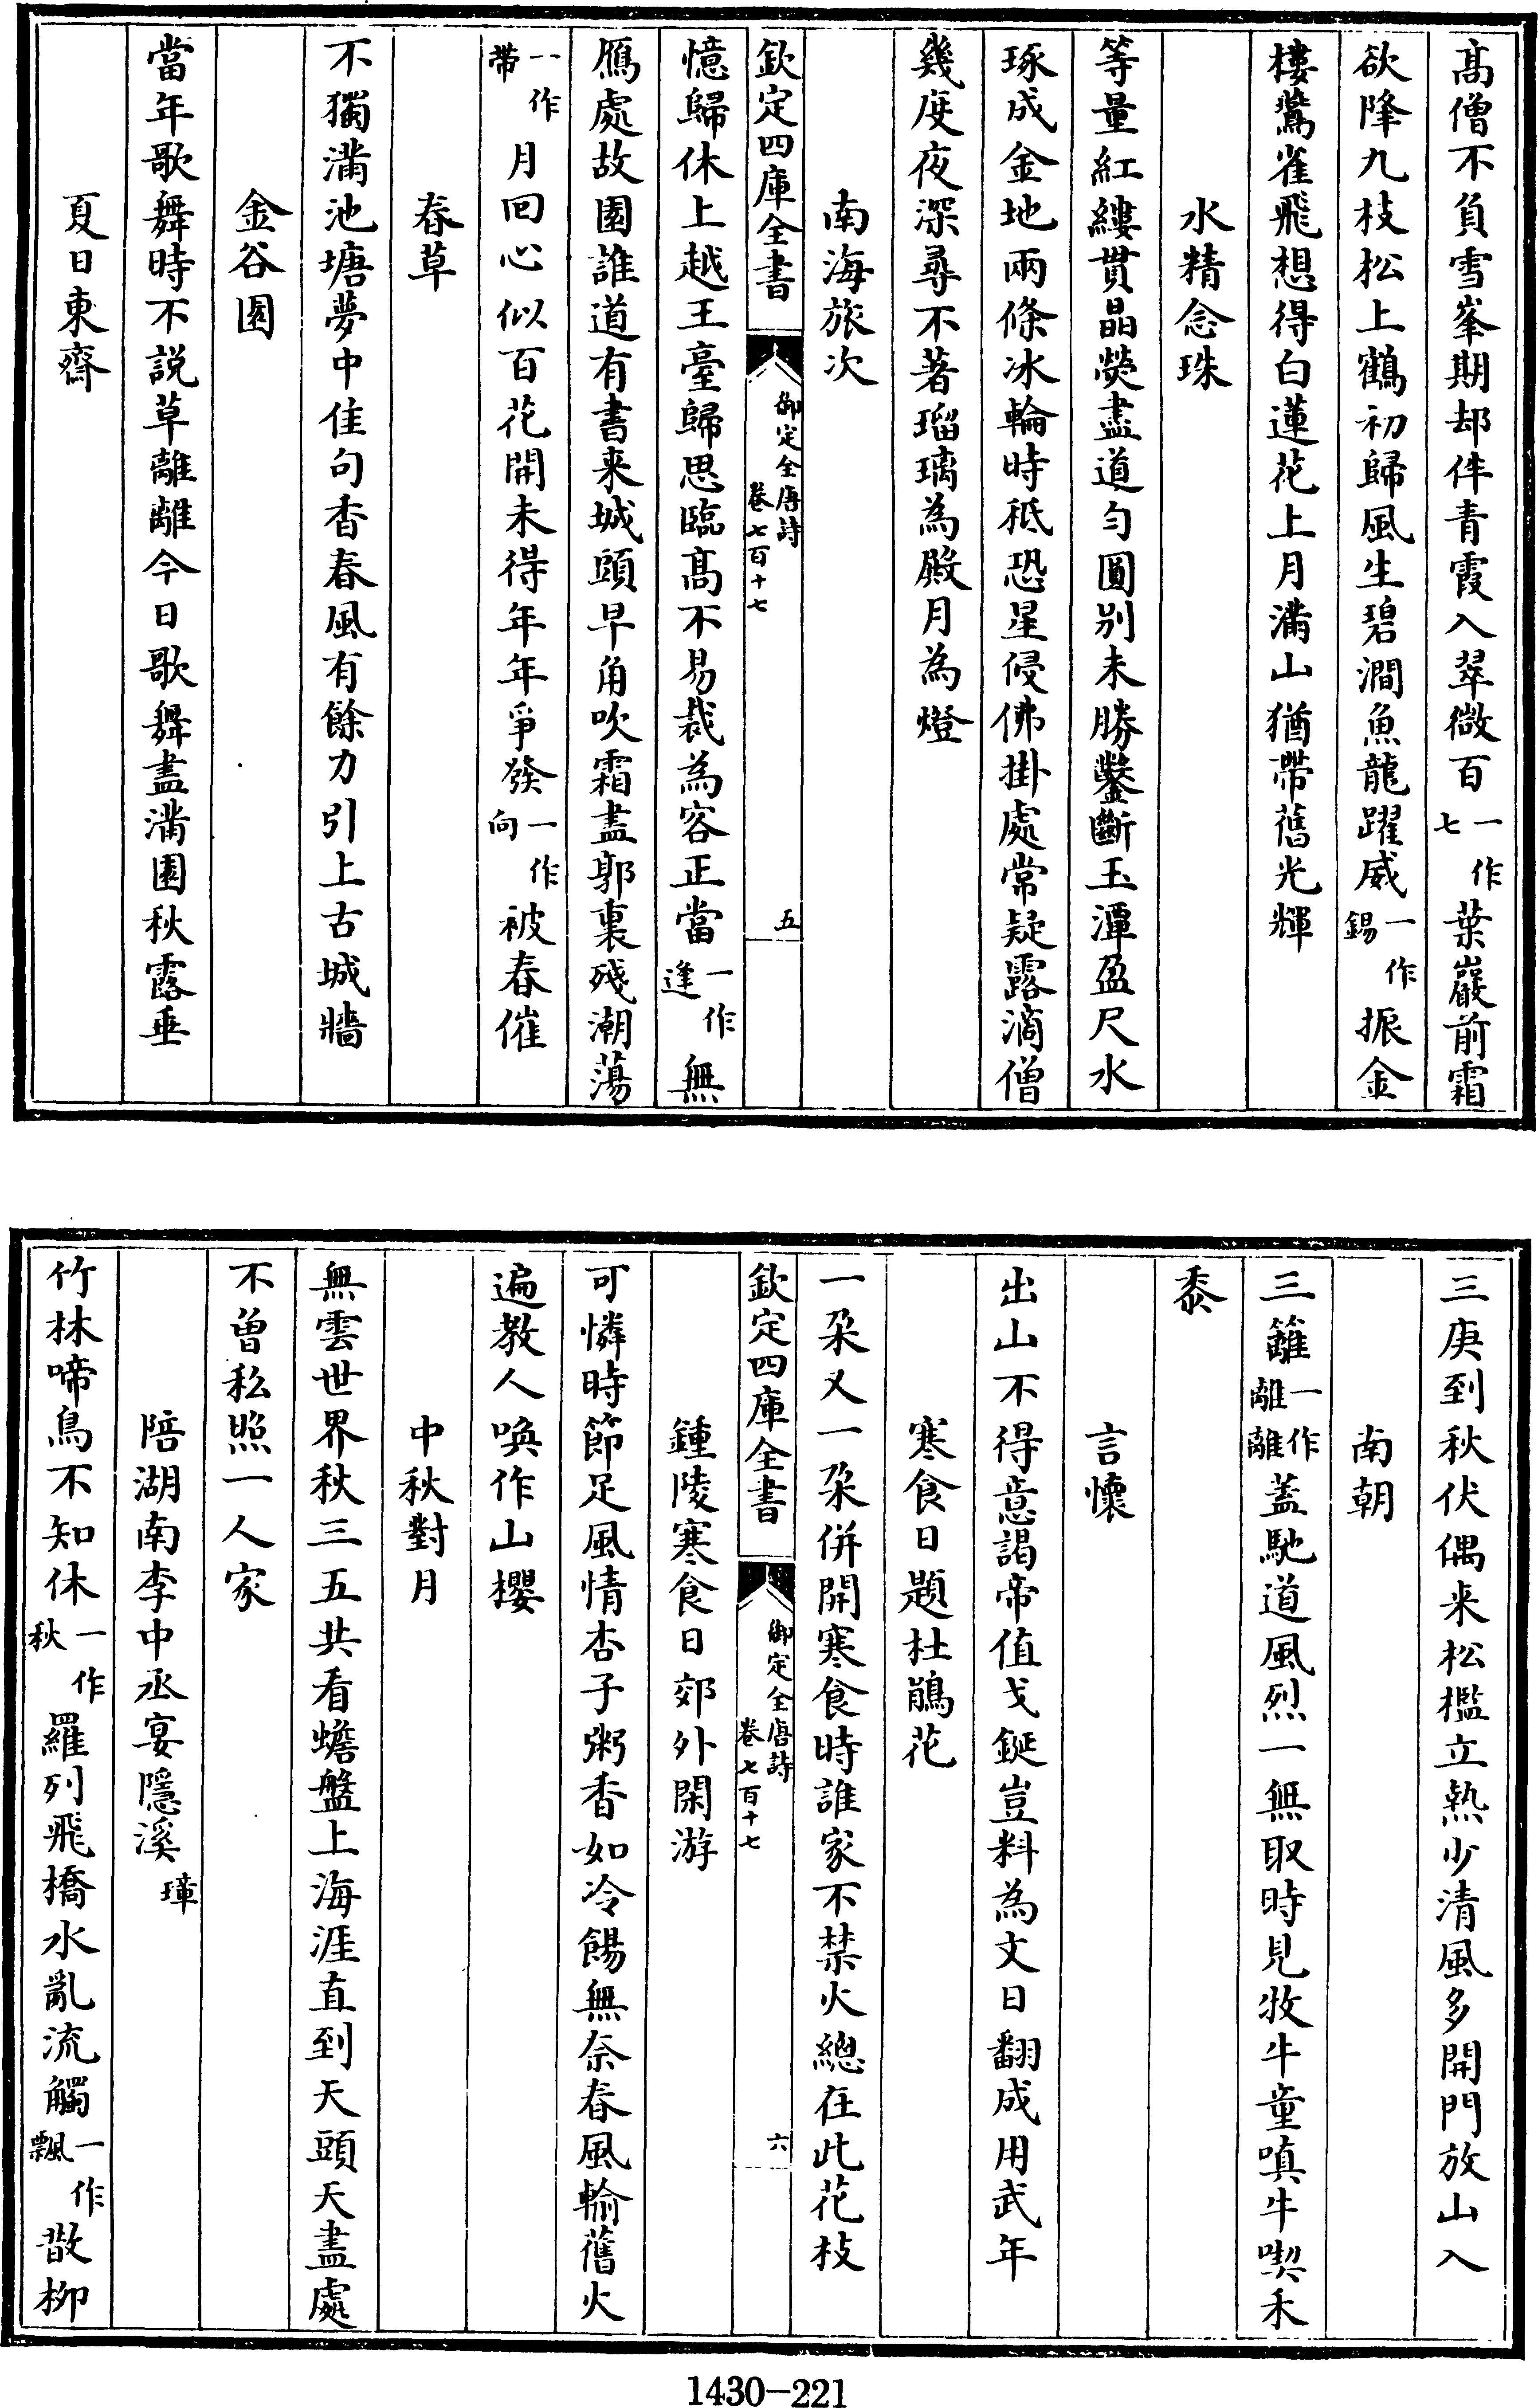 高僧不負雪峯期却伴青霞入翠微百一作七葉巖前霜
欲降九枝松上鶴初歸風生碧澗魚龍躍威一作錫振金
樓鷰雀飛想得白蓮花上月滿山猶帶舊光輝
水精念珠
等量紅縷貫晶熒盡道勻圓别未勝鑿斷玉潭盈尺水
琢成金地兩條冰輪時秪恐星侵佛掛處常疑露滴僧
幾度夜深尋不著瑠璃為殿月為燈
南海旅次
欽定四庫全書
御定全唐詩
卷七百十七
五
憶歸休上越王臺歸思臨高不易裁為客正當一作逢無
鴈處故園誰道有書来城頭早角吹霜盡郭裏殘潮蕩
一作帶月回心似百花開未得年年爭發一作向被春催
春草
不獨滿池塘夢中佳句香春風有餘力引上古城牆
金谷園
當年歌舞時不説草離離今日歌舞盡滿園秋露垂
夏日東齋
三庚到秋伏偶来松檻立熱少清風多開門放山入
南朝
三籬一作離離蓋馳道風烈一無取時見牧牛童嗔牛喫禾
黍
言懷
出山不得意謁帝值戈鋋豈料為文日翻成用武年
寒食日題杜鵑花
一朶又一朶併開寒食時誰家不禁火總在此花枝
欽定四庫全書
御定全唐詩
卷七百十七
六
鍾陵寒食日郊外閑游
可憐時節足風情杏子粥香如冷餳無奈春風輸舊火
遍教人喚作山櫻
中秋對月
無雲世界秋三五共看蟾盤上海涯直到天頭天盡處
不曾私照一人家
陪湖南李中丞宴隱溪璋
竹林啼鳥不知休一作秋羅列飛橋水亂流觸一作飄散柳
1430-221